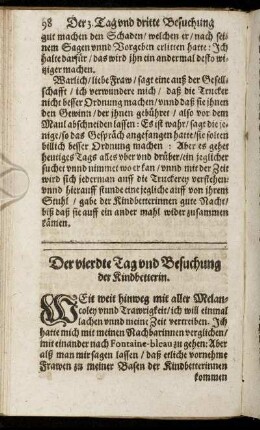 98 Der 3. Tag vnd dritte Besuchung
gut machen den Schaden/ welchen er/ nach sei-
nem Sagen vnnd Vorgeben erlitten hatte: Ich
halte darfür/ das wird jhn ein andermal desto wi-
tziger machen.
Warlich/ liebe Fraw/ sagte eine auß der Gesell-
schafft/ ich verwundere mich/ daß die Trucker
nicht besser Ordnung machen/ vnnd daß sie jhnen
den Gewinn/ der jhnen gebühret/ also vor dem
Maul abschneiden lassen: Es ist wahr/ sagt die je-
nige/ so das Gespräch angefangen hatte/ sie solten
billich besser Ordnung machen: Aber es gehet
heutiges Tags alles vber vnd drüber/ ein jeglicher
suchet vnnd nimmet wo er kan/ vnnd mit der Zeit
wird sich jederman auff die Truckerey verstehen:
vnnd hierauff stunde eine jegliche auff von jhrem
Stuhl/ gabe der Kindbetterinnen gute Nacht/
biß daß sie auff ein ander mahl wider zusammen
kämen.
Der vierdte Tag vnd Besuchung
der Kindbetterin.
WEit weit hinweg mit aller Melan-
coley vnnd Trawrigkeit/ ich will einmal
lachen vnnd meine Zeit vertreiben. Ich
hatte mich mit meinen Nachbarinnen verglichen/
mit einander nach Fontaine-bleau zu gehen: Aber
alß man mir sagen lassen/ daß etliche vornehme
Frawen zu meiner Basen der Kindbetterinnen
kommen